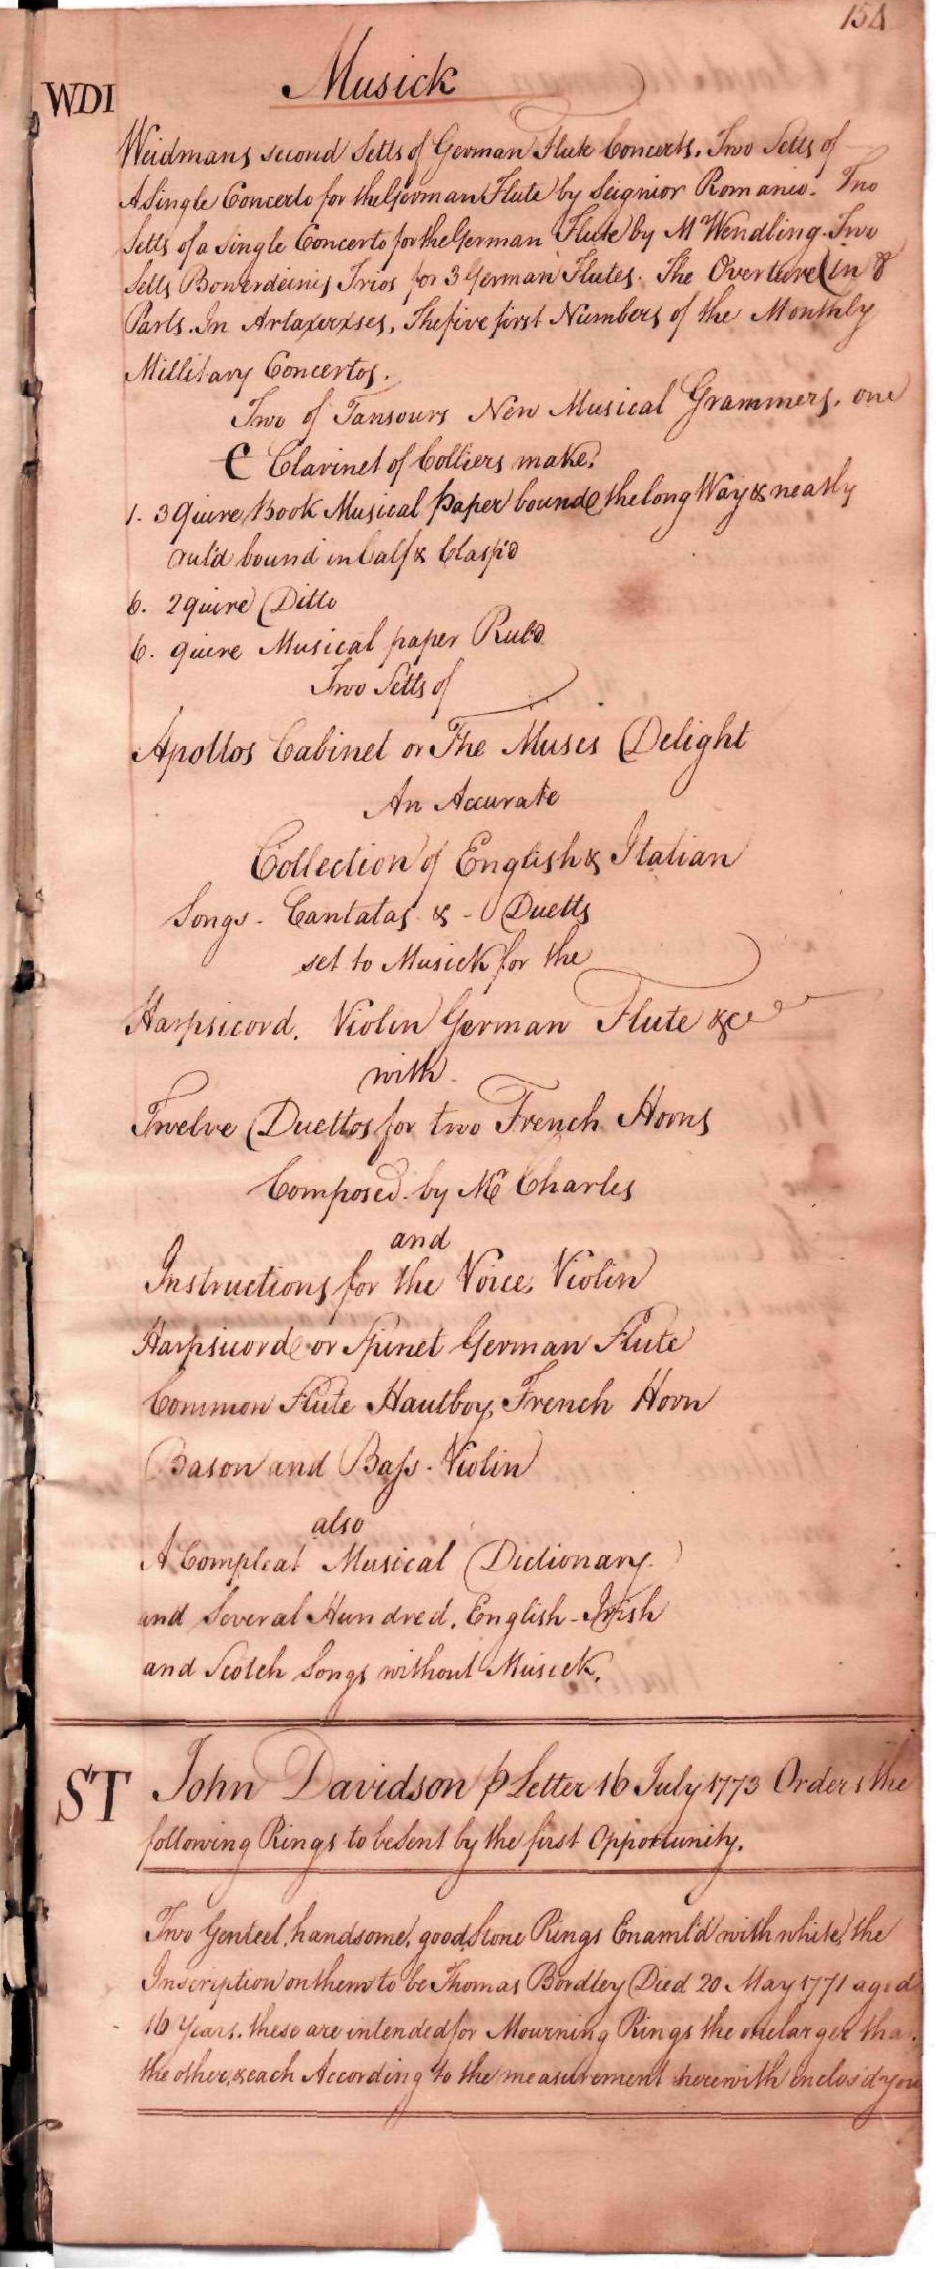 154
Musick
WDI
Weidmans second Setts of German Flute Concerts. Two Setts of
A Single Concerto for the German Flute by Seignior Romanio. Two
Setts of a single Concerto for the German Flute by Mr Wendling. Two
Setts Bowerdeinis Trios for 3 German Flutes. The Overture in 8
Parts. In Artaxerxses, The five first Numbers of the Monthly
Millitary Concertos.
Two of Tansours New Musical Grammers. one
C Clarinet of Colliers make.
1. 3 Quire Book Musical Paper bound the long Way & neatly
ruld bound in Calf & Clasp'd
6. 2 quire Ditto
6. quire Musical paper Ruld
Two Setts of
Apollos Cabinet or The Muses Delight
An Accurate
Collection of English & Italian
Songs - Cantatas & - Duetts
set to Musick for the
Harpsicord. Violin German Flute &c
with
Twelve Duettos for two French Horns
Composed by Mr Charles
and
Instructions for the Voice, Violin
Harpsicord or Spinet German Flute
Common Flute Hautboy, French Horn
Bason and Bass - Violin
also
A Compleat Musical Dictionary
and Several Hundred. English - Irish
and Scotch Songs without Musick.
ST
John Davidson p Letter 16 July 1773 Orders the
following Rings to be Sent by the first Opportunity.
Two Genteel, handsome, good Stone Rings Enaml'd with white, the
Inscription on them to be Thomas Bordley Died 20 May 1771 aged
16 Years. these are intended for Mourning Rings the one larger tha
the other, & each According to the measurement herewith enclos'd you